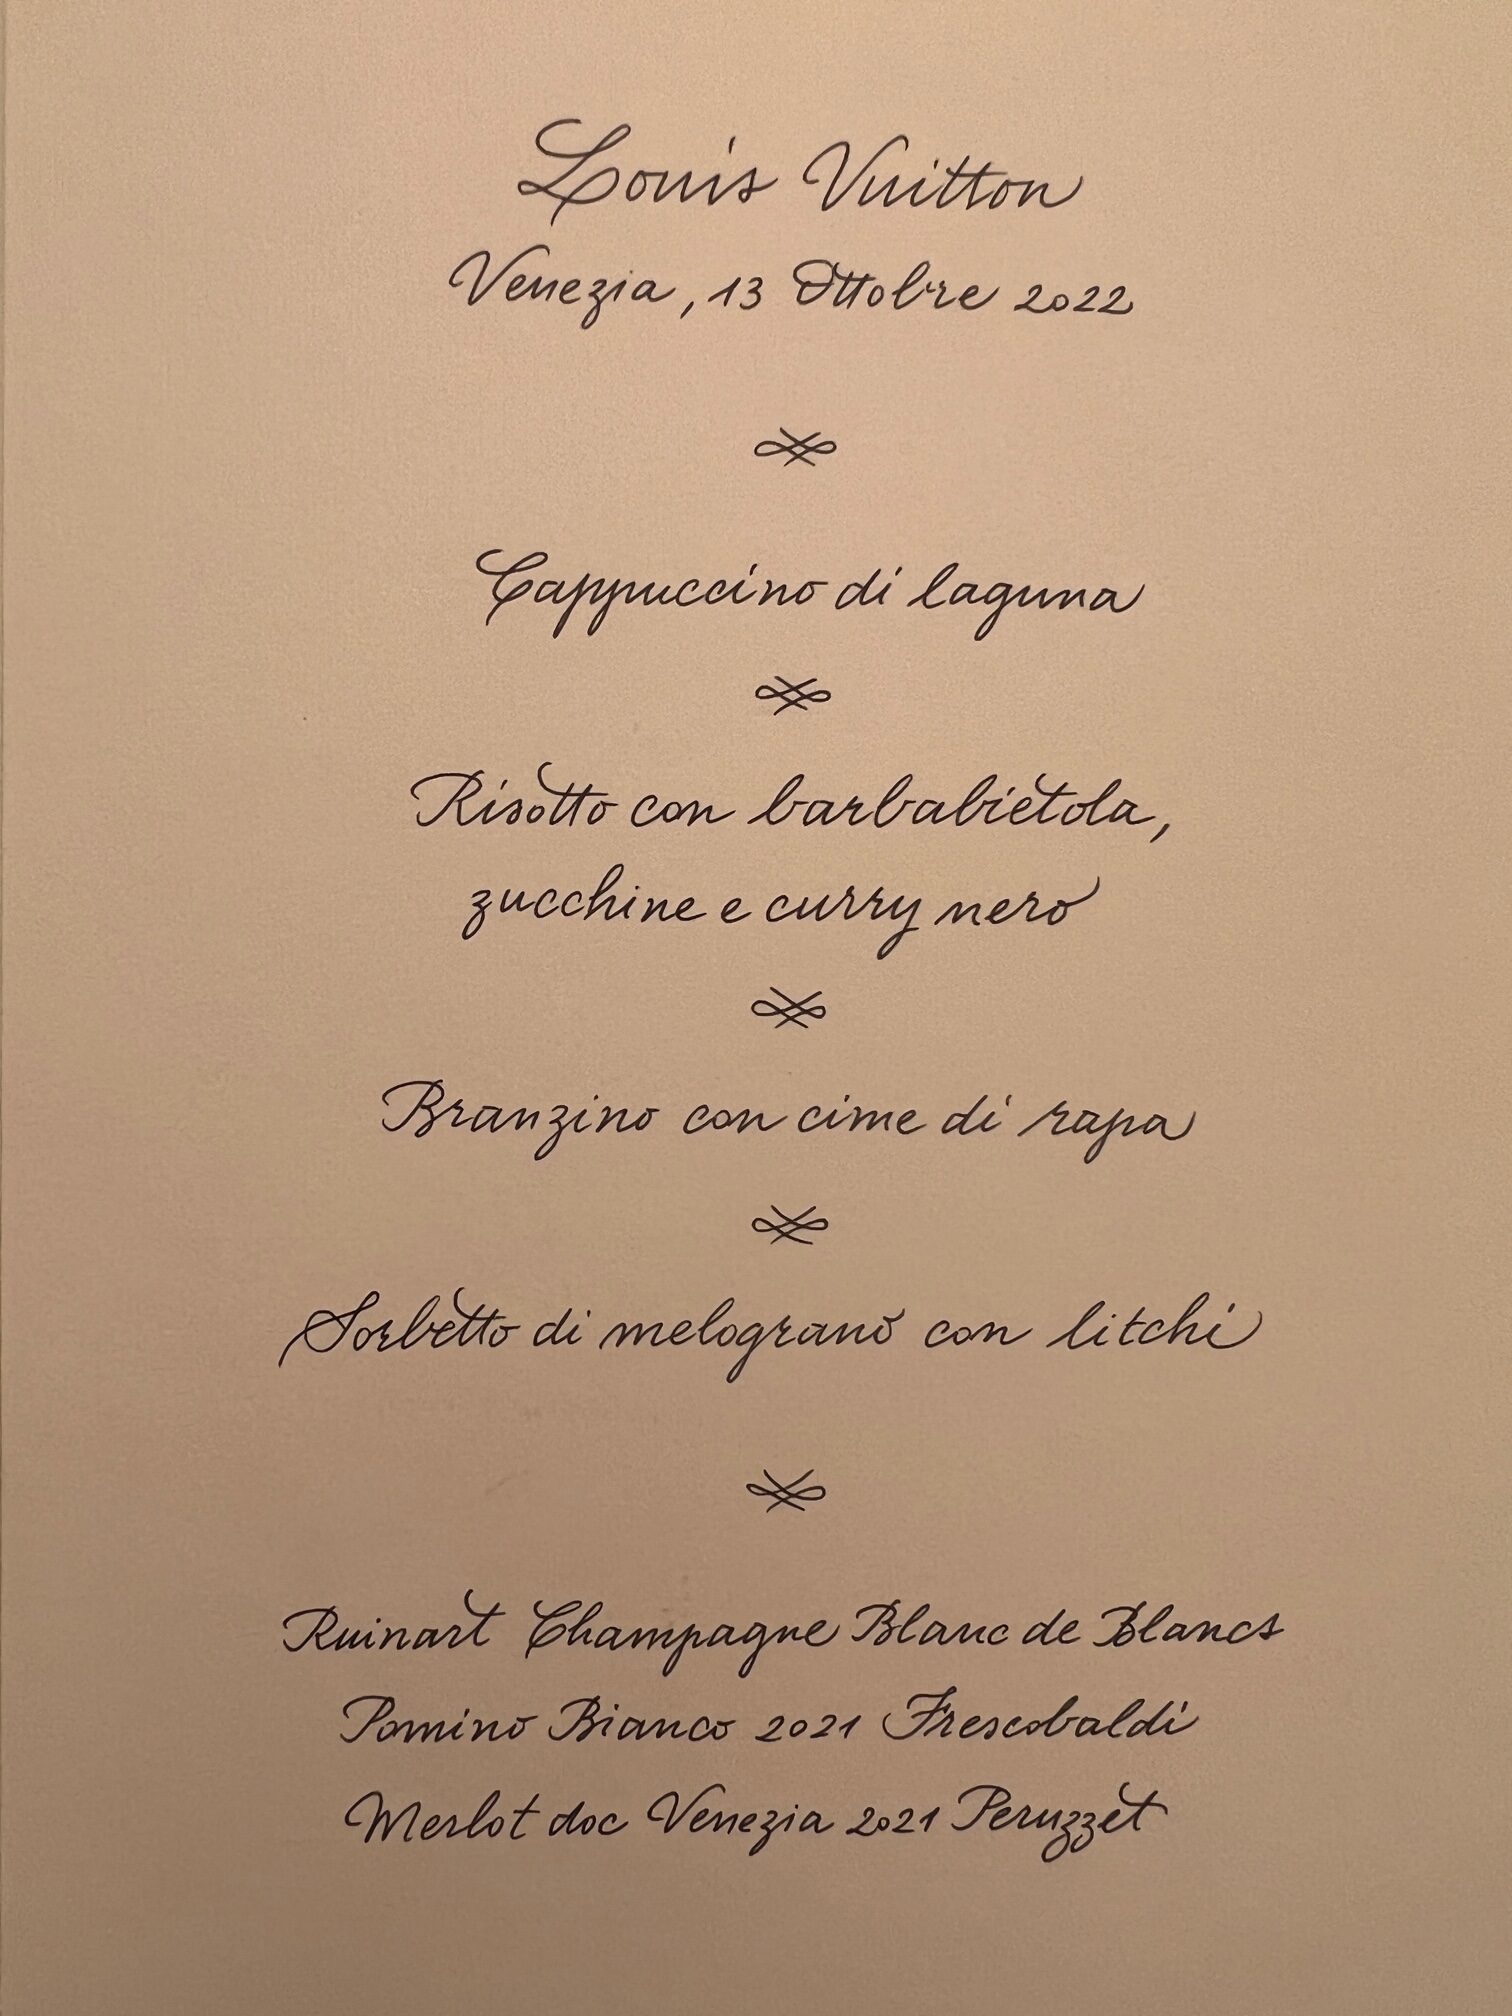 Louis Vuitton
Venezia, 13 Ottobre 2022
Cappuccino di laguna
Risotto con barbabietola,
zucchine e curry nero
Branzino con cime di rapa
Sorbetto di melograno con litchi
Ruinart Champagne Blanc de Blancs
Pomino Bianco 2021 Frescobaldi
Merlot doc Venezia 2021 Peruzzet